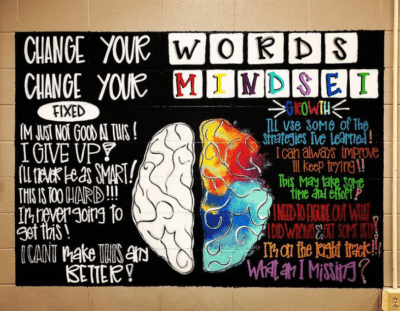 CHANGE YOUR WORDS
CHANGE YOUR MINDSET
FIXED
I'M JUST NOT GOOD AT THIS!
I GIVE UP!
I'll never be as SMART!
THIS IS TOO HARD!!!
I'm never going to
get this!
I CAN'T make THIS any
BETTER!
GROWTH
I'll use some of the
strategies I've learned!
I can always improve
I'll keep trying!!
This may take some
time and effort!
I NEED TO FIGURE OUT WHAT
I DID WRONG & GET SOME HELP!
I'm on the right track!!!
What am I Missing?